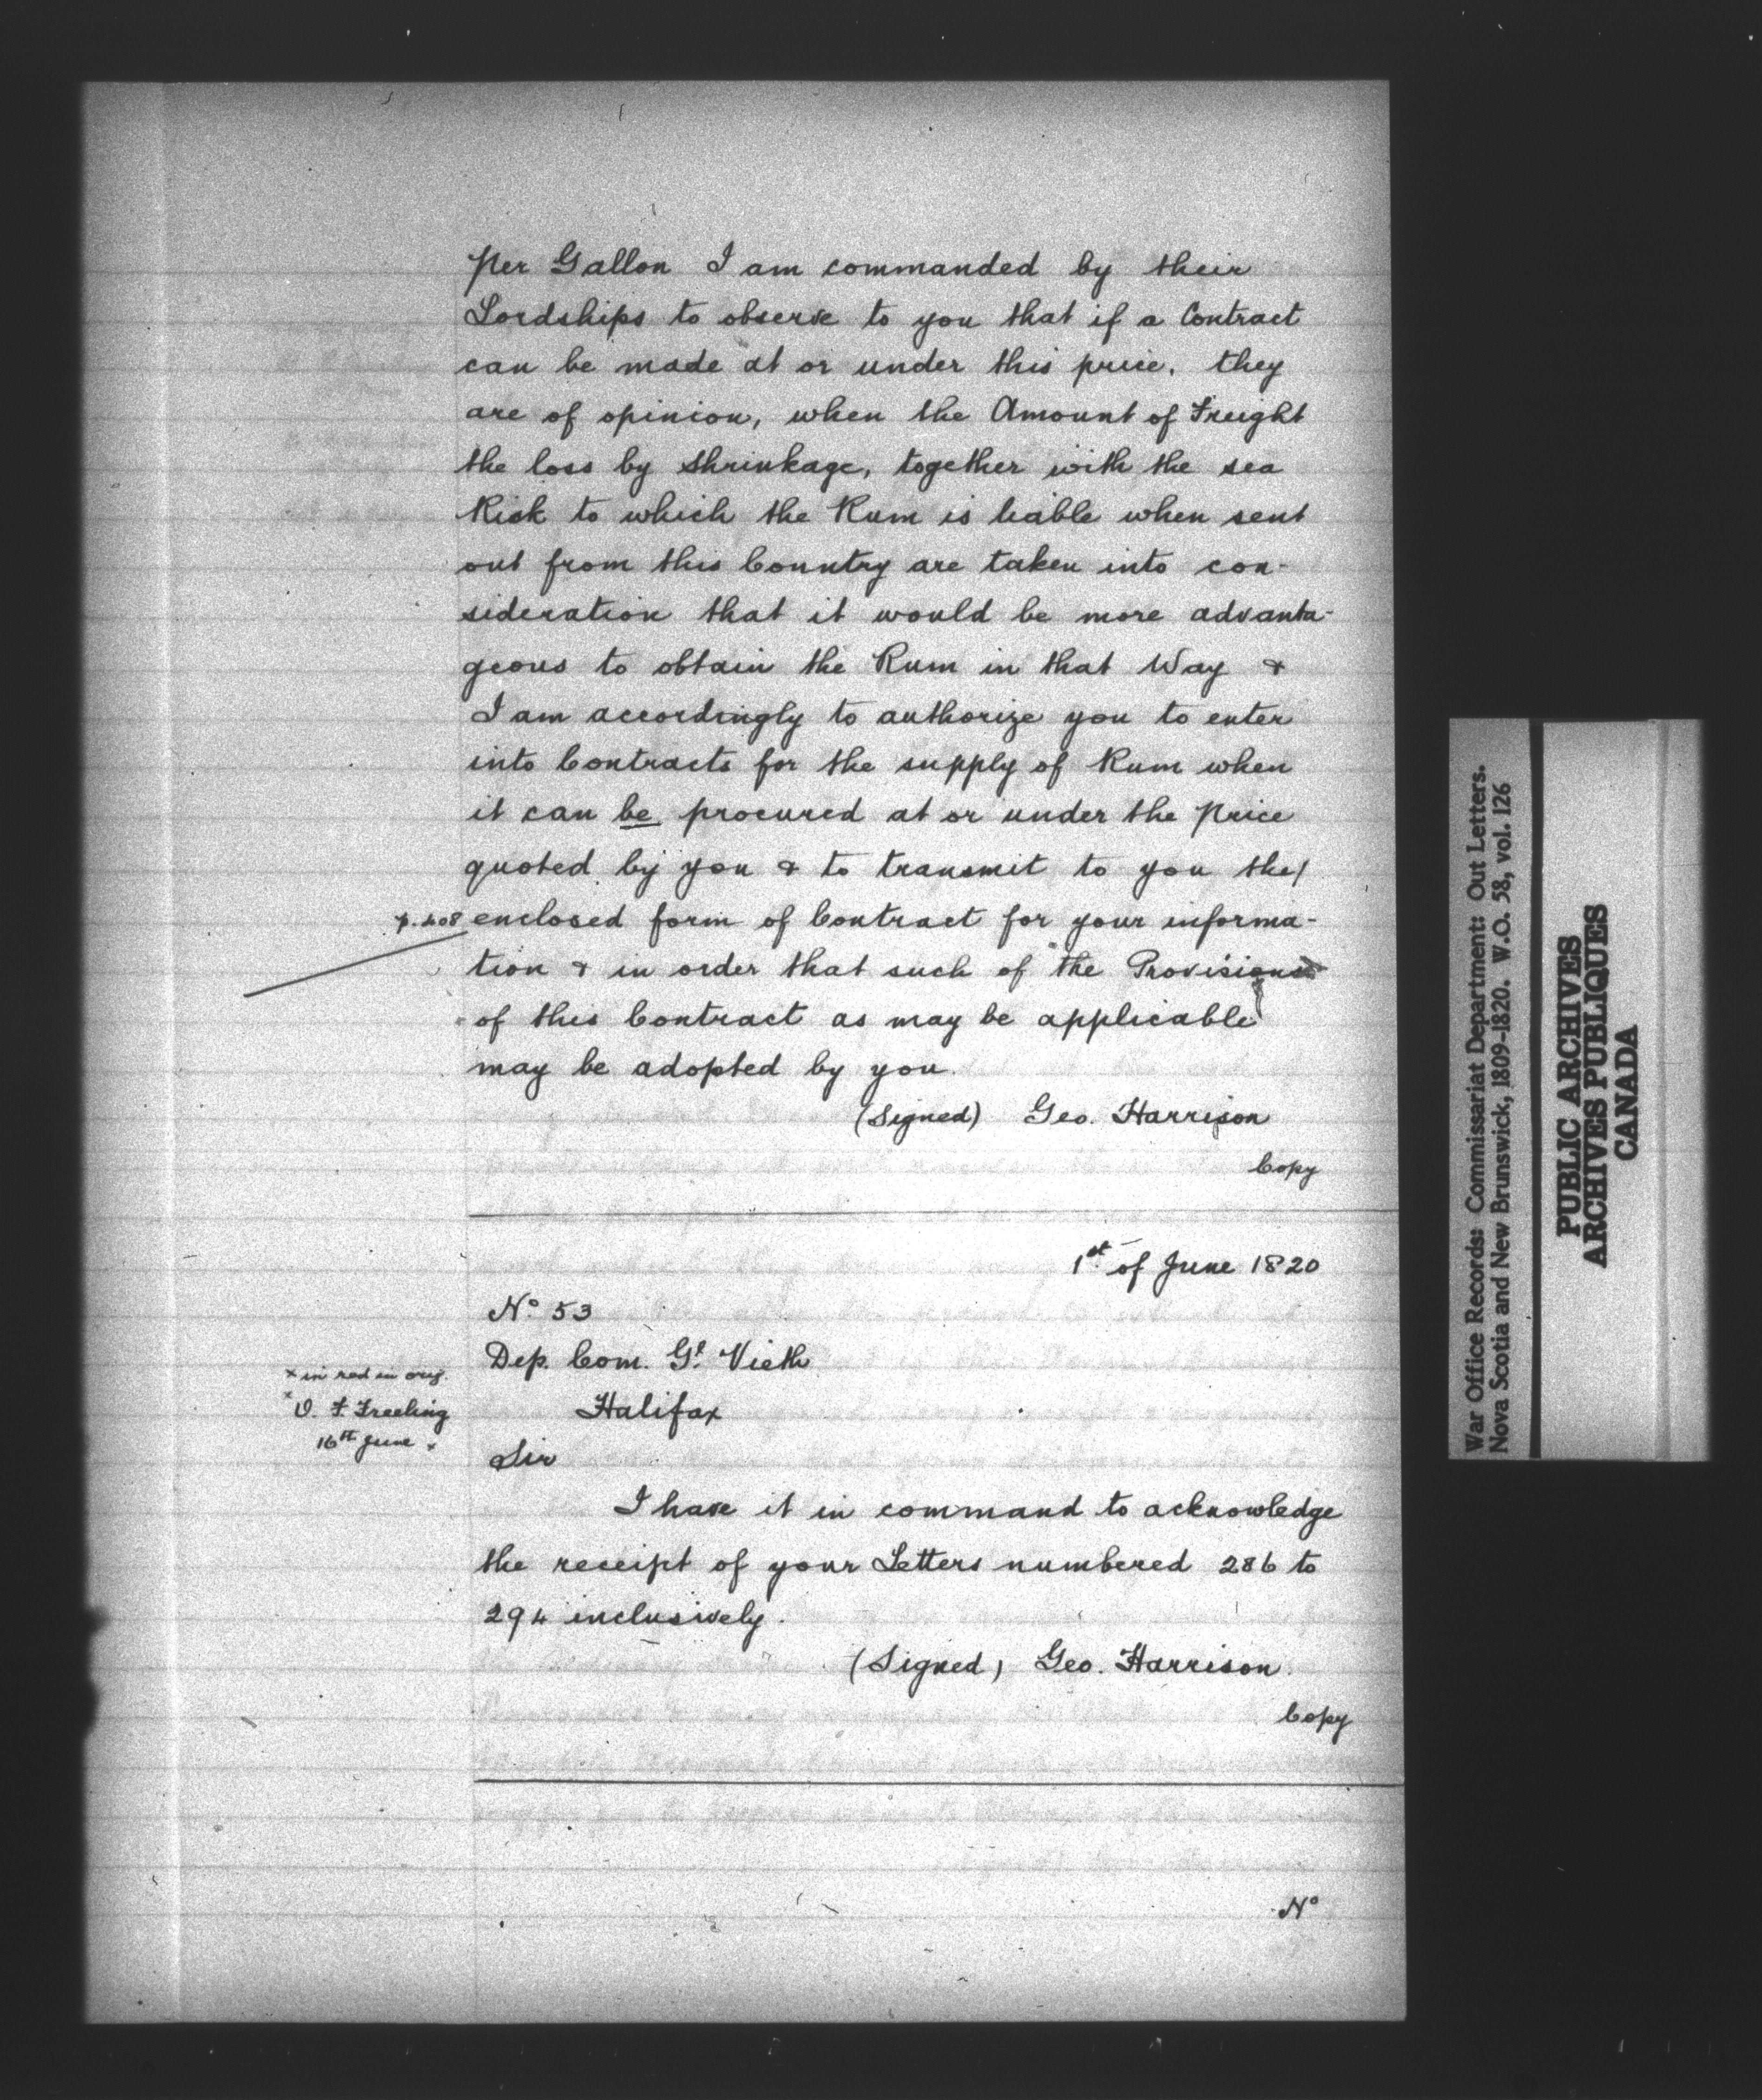 per Gallon I am commanded by their
Lordships to observe to you that if a Contract
can be made at or under this price, they
are of opinion, when the Amount of Freight
the loss by Shrinkage, together with the sea
Risk to which the Rum is liable when sent
out from this Country are taken into con-
sideration that it would be more advanta-
geous to obtain the Rum in that Way &
I am accordingly to authorize you to enter
into Contracts for the supply of Rum when
it can be procured at or under the Price
quoted by you & to transmit to you the
p. 408 enclosed form of Contract for your informa-
tion & in order that such of the Provisions
of this Contract as may be applicable
may be adopted by you.
(Signed) Geo. Harrison
Copy
1st of June 1820
No 53
Dep. Com. Gl. Vieth
Halifax
x in red in orig.
x F. Freeling
16th June x
Sir
I have it in command to acknowledge
the receipt of your Letters numbered 286 to
294 inclusively.
(Signed) Geo. Harrison
Copy
No
War Office Records: Commissariat Department: Out Letters.
Nova Scotia and New Brunswick, 1809-1820. W.O. 58, vol. 126
PUBLIC ARCHIVES
ARCHIVES PUBLIQUES
CANADA